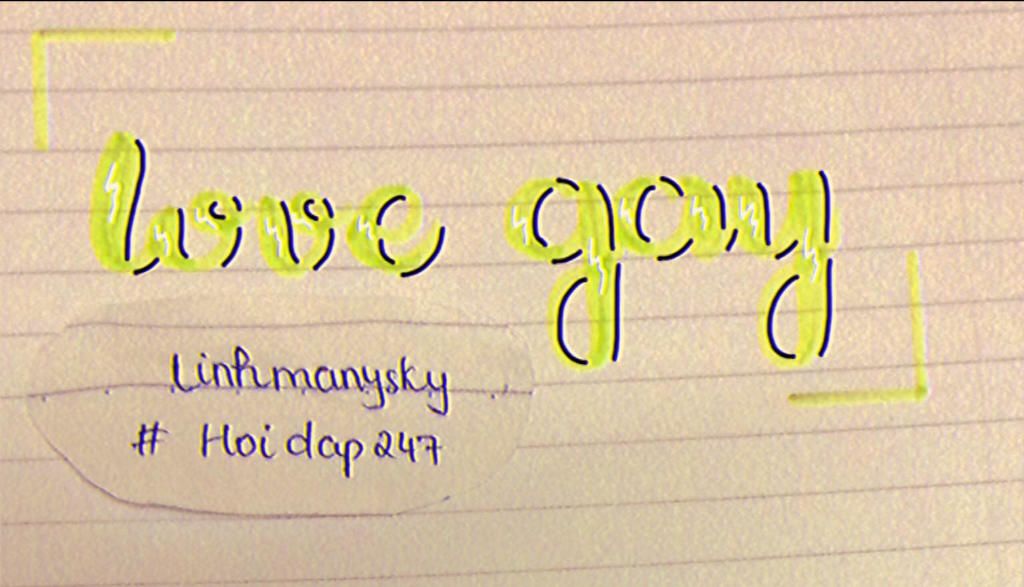 love gay
Linhmanysky
# Hoidap247